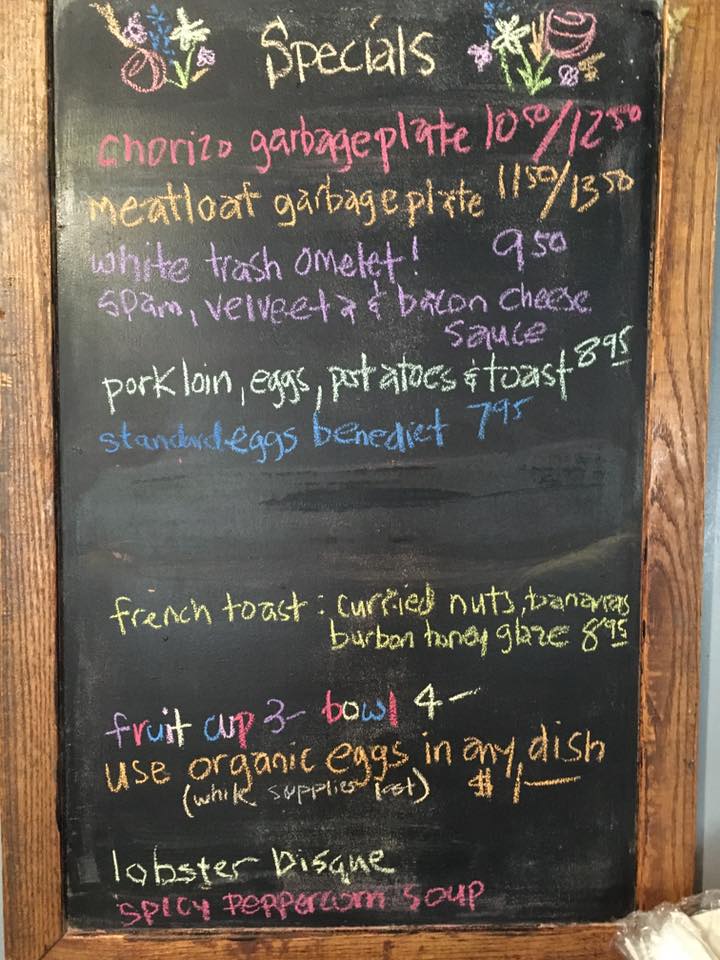 Specials
chorizo garbage plate 10 50/12 50
meatloaf garbage plate 11 50/13 50
white trash omelet! 9 50
spam, velveeta & bacon cheese
sauce
pork loin, eggs, potatoes & toast 8 95
standard eggs benedict 7 95
french toast: curried nuts, bananas
burbon honey glaze 8 95
fruit cup 3- bowl 4-
use organic eggs in any dish
(while supplies last) $1-
lobster Bisque
spicy peppercorn soup